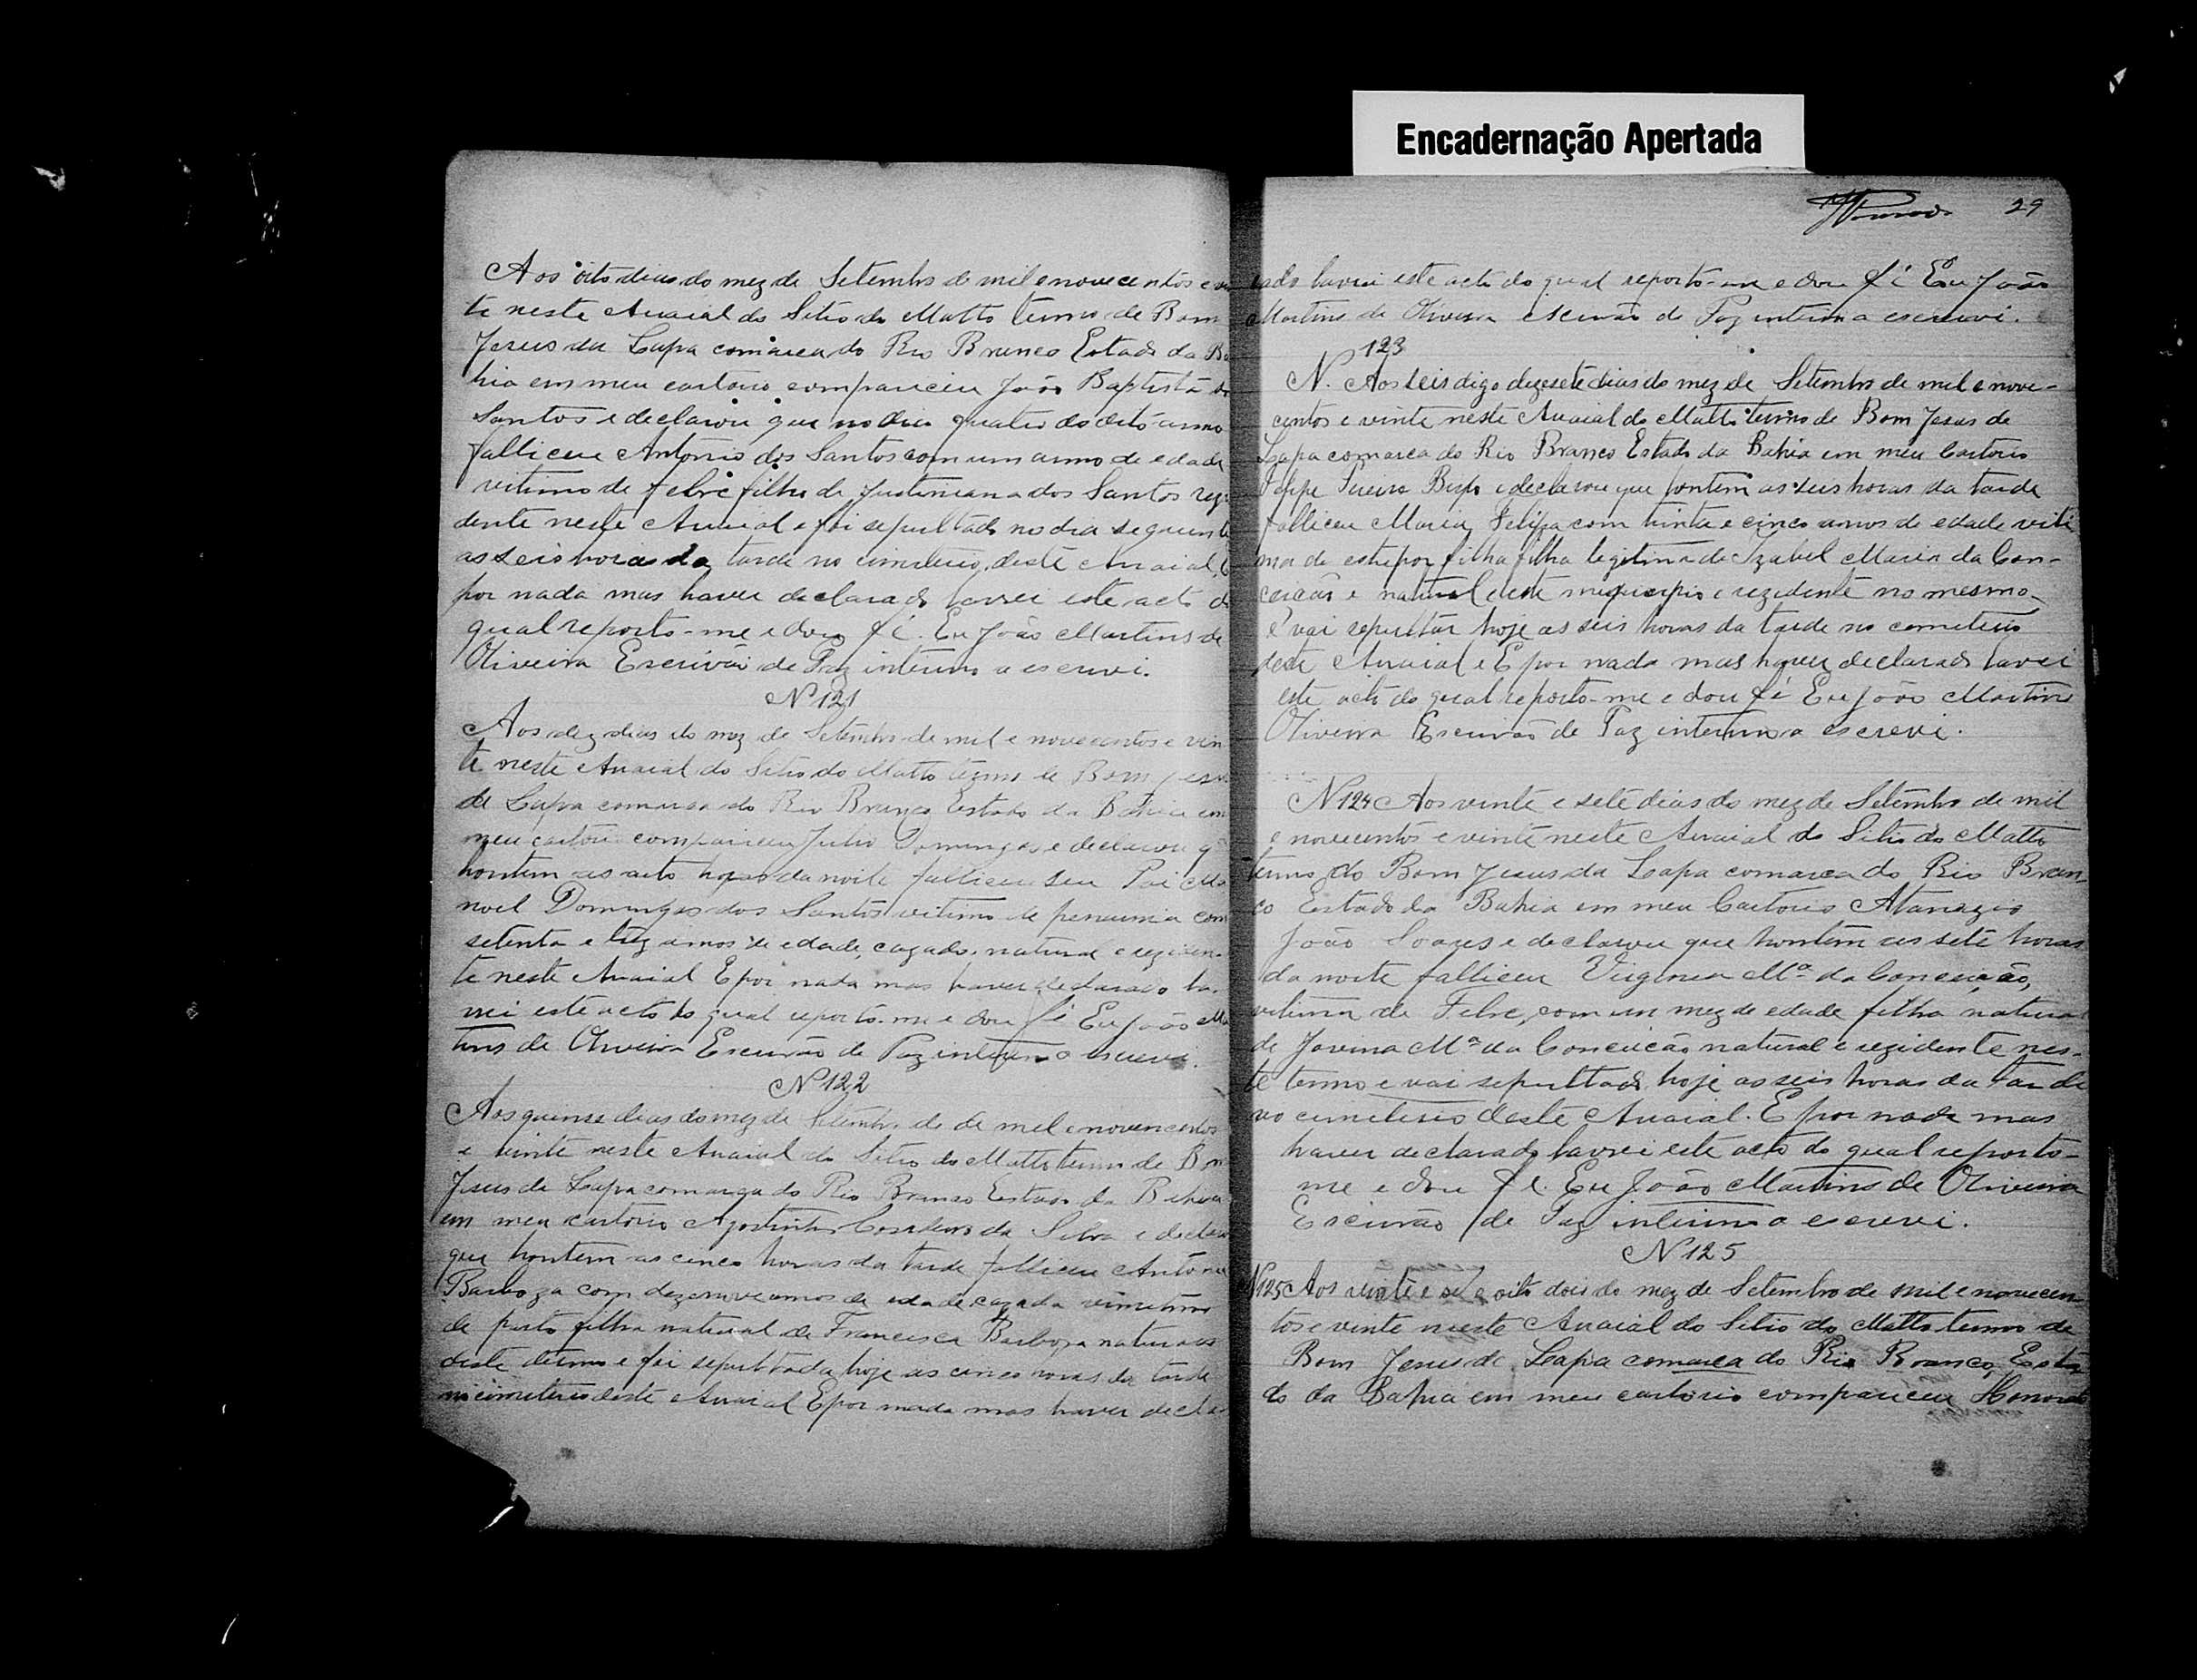 Encadernação Apertada
29
Aos oito dias do mez de Setembro de mil e novecentos e vin
te neste Arraial do Sitio do Matto termo de Bom
Jesus da Lapa comarca do Rio Branco Estado da Ba
hia em meu cartorio compareceu João Baptista do
Santos e declarou que no dia quatro do dito anno
falliceu Antonio dos Santos com um anno de edade
vitimo de febre filho de Justiniana dos Santos rezi
dente neste Arraial e foi sepultado no dia seguinte
as seis horas da tarde no cimiterio deste Arraial, E
por nada mas haver declarado lavrei este acto do
qual reporto-me e dou fé. Eu João Martins de
Oliveira Escrivão de Paz interino a escrevi.
N 121
Aos dez dias do mez de Setembro de mil e novecentos e vin
te neste Arraial do Sitio do Matto termo de Bom Jesus
de Lapa comarca do Rio Branco Estado da Bahia em
meu cartorio compareceu Julio Domingos e declarou q
hontem as oito horas da noite falliceu seu Pai Ma
noel Domingos dos Santos vitimo de penumia com
setenta e trez annos de edade, cazado, natural e reziden
te neste Arraial E por nada mas haver declarado la-
vrei este acto do qual reporto-me e dou fé Eu João Mar
tins de Oliveira Escrivão de Paz interino o escrevi.
N 122
Aos quinse dias do mez de Setembro de de mil e novencentos
e vinte neste Arraial do Sitio do Matto termo de Bom
Jesus de Lapa comarqa do Rio Branco Estado da Bahia
em meu cartorio Agostinho Cordeiro da Silva e declarou
que hontem as cinco horas da tarde falliceu Antonia
Barboza com dezenove annos de edade, cazada vimitima
de parto filha natural de Francisca Barboza naturaes
deste termo e foi sepultada hoje as cinco horas da tarde
no cimiterio deste Arraial E por nada mas haver decla
rado lavrei este acto do qual reporto-me e dou fé Eu João
Martins de Oliveira escrivão de Paz interino a escrevi.
N. 123 Aos seis digo dezesete dias do mez de Setembro de mil e nove-
centos e vinte neste Arraial do Matto termo de Bom Jesus de
Lapa comarca do Rio Branco Estado da Bahia em meu Cartorio
Pereira Bispo e declarou que hontem as seis horas da tarde
falliceu Maria Felipa com trinta e cinco annos de edade viti
ma de estupor filha filha legitima de Izabel Maria da Con-
ceicão e natural deste municipio e rezidente no mesmo
e vai sepultar hoje as seis horas da tarde no cemeterio
deste Arraial e E por nada mas haver declarado lavrei
este acto do qual reporto-me e dou fé Eu João Martins
Oliveira Escrivão de Paz interino a escrevi.
N 124 Aos vinte e sete dias do mez de Setembro de mil
e novecentos e vinte neste Arraial do Sitio do Matto
termo do Bom Jesus da Lapa comarca do Rio Bran-
co Estado da Bahia em meu Cartorio Atanazio
João Soares e declarou que hontem as sete horas
da noite falliceu Virginia Mª da Conceicão,
vitima de Febre, com um mez de edade filha natural
de Jovina Mª da Conceicão natural e rezidente nes-
te termo e vai sepultado hoje as seis horas da tarde
no cimiterio deste Arraial. E por nada mas
haver declarado lavrei este acto do qual reporto-
me e dou fé. Eu João Martins de Oliveira
Escrivão de Paz interino o escrevi.
N 125
N125 Aos vinte e se e oito dois do mez de Setembro de mil e novecen-
tos e vinte neste Arraial do Sitio do Matto termo de
Bom Jesus de Lapa comarca do Rio Branco, Esta
do da Bahia em meu cartorio compareceu Honorato